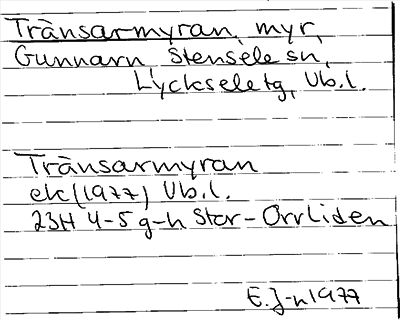 Tränsarmyran, myr,
Gunnarn Stensele sn,
Lycksele tg, Vb.l.
Tränsarmyran
ek (1977) Vb.l.
23H 4-5 g-h Stor-Orrliden
E.J-n 1977